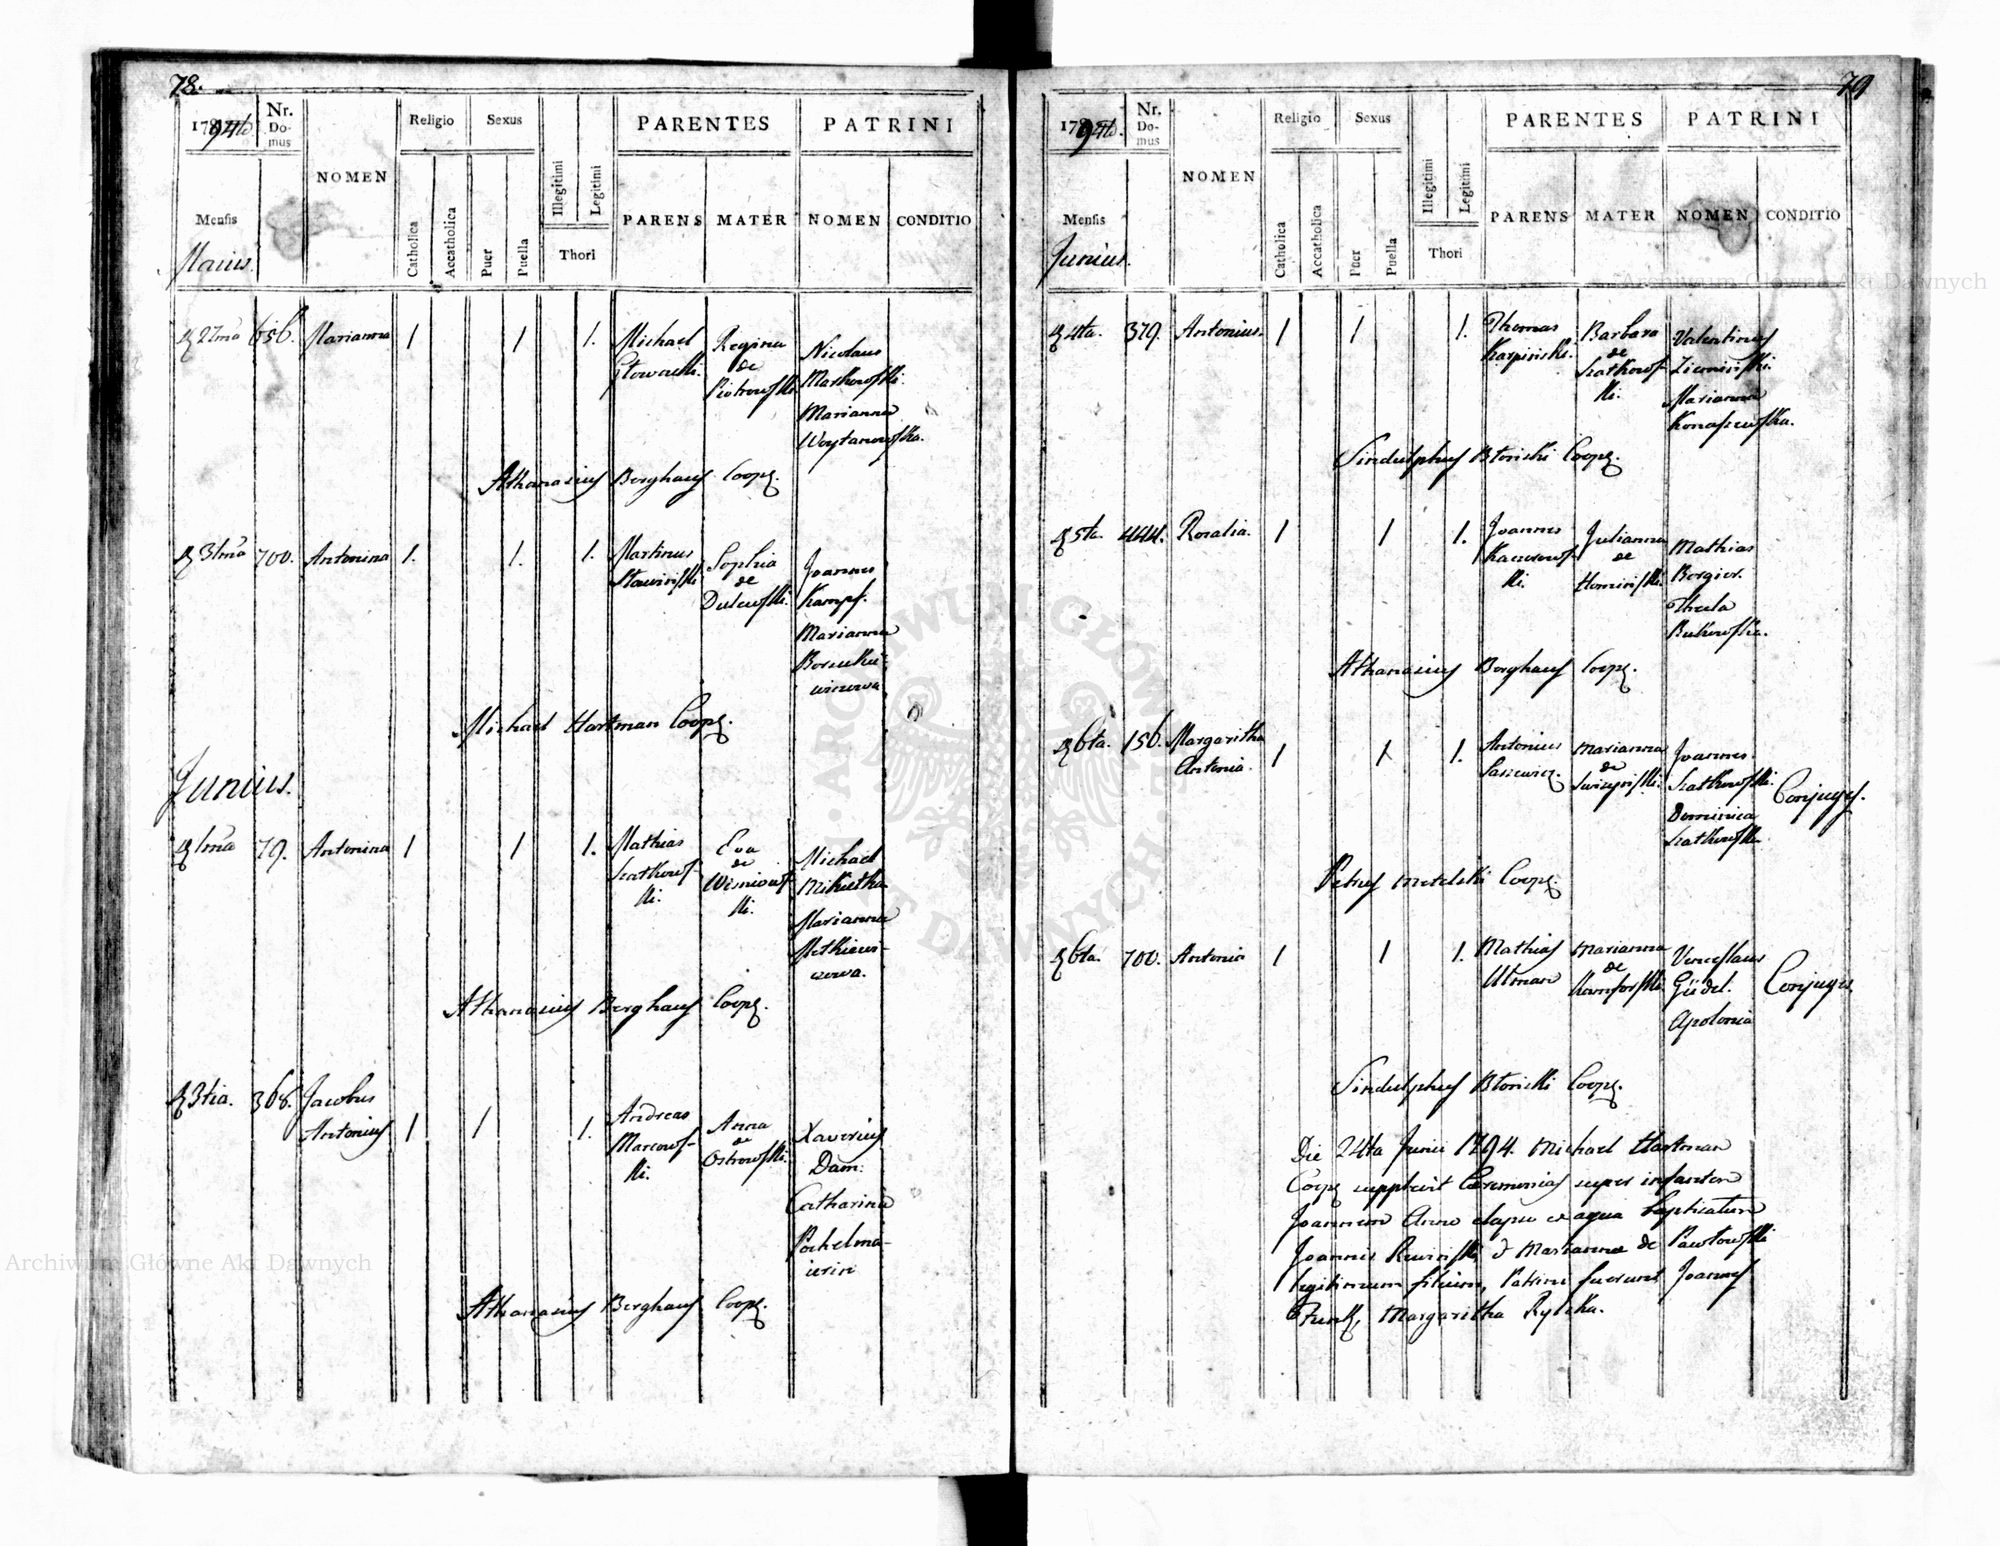 78.
1794to
Nr. Domus
NOMEN
Religio
Sexus
PARENTES
PATRINI
Mensis
Maius.
Catholica
Accatholica
Puer
Puella
Illegitimi
Legitimi
Thori
PARENS
MATER
NOMEN
CONDITIO
27ma 656. Marianna 1 1 1. Michael Regina de Piotrowski Nicolaus
Markowski.
Marianna
Woytanowska.
Athanasius Berghauf Coop.
31ma 700. Antonina 1. 1. 1. Martinus Stawinski Sophia de Joannes
Kampf.
Marianna
Michael Hartman Coop.
Junius.
1ma 79. Antonina 1 1 1. Mathias Szatkowski. Eva de Michael
Marianna
Athanasius Berghauf Coop.
3tia. 368. Jacobus
Antonius 1 1 1. Andreas Marcowski. Anna de Ostrowski. Xaverius
Dam:
Catharina
Athanasius Berghauf Coop.
79
1794to.
Nr. Domus
NOMEN
Religio
Sexus
PARENTES
PATRINI
Mensis
Junius.
Catholica
Accatholica
Puer
Puella
Illegitimi
Legitimi
Thori
PARENS
MATER
NOMEN
CONDITIO
4ta. 379. Antonius. 1 1 1. Thomas Karpinski. Barbara de Szatkowski. Valentinus
Zieminski.
Marianna
Sindulphus Btonski Coop.
5ta. 444. Rosalia. 1 1 1. Joannes Julianna de Mathias
Thecla
Bukowska.
Athanasius Berghauf Coop.
6ta. 156. Margaritha
Antonia. 1 1 1. Antonius Marianna de Joannes
Szatkowski. Conjuges.
Dominica
Szatkowska
Petrus Metelski Coop.
6ta. 700. Antonia 1 1 1. Mathias Ulman Marianna de Venceslaus
Güdel. Conjuges
Apolonia
Sindulphus Btonski Coop.
Die 24ta Junii 1794. Michael Hartman
Coop supplevit Ceremonias super infantem
Joannem Anno elapso ex aqua baptisatum
Joannis & Marianna de Pawtowski
legitimum filium, Patrini fuerunt Joannes
Margaritha Rylska.
Archiwum Główne Akt Dawnych
Archiwum Główne Akt Dawnych
ARCHIWUM GŁÓWNE AKT DAWNYCH